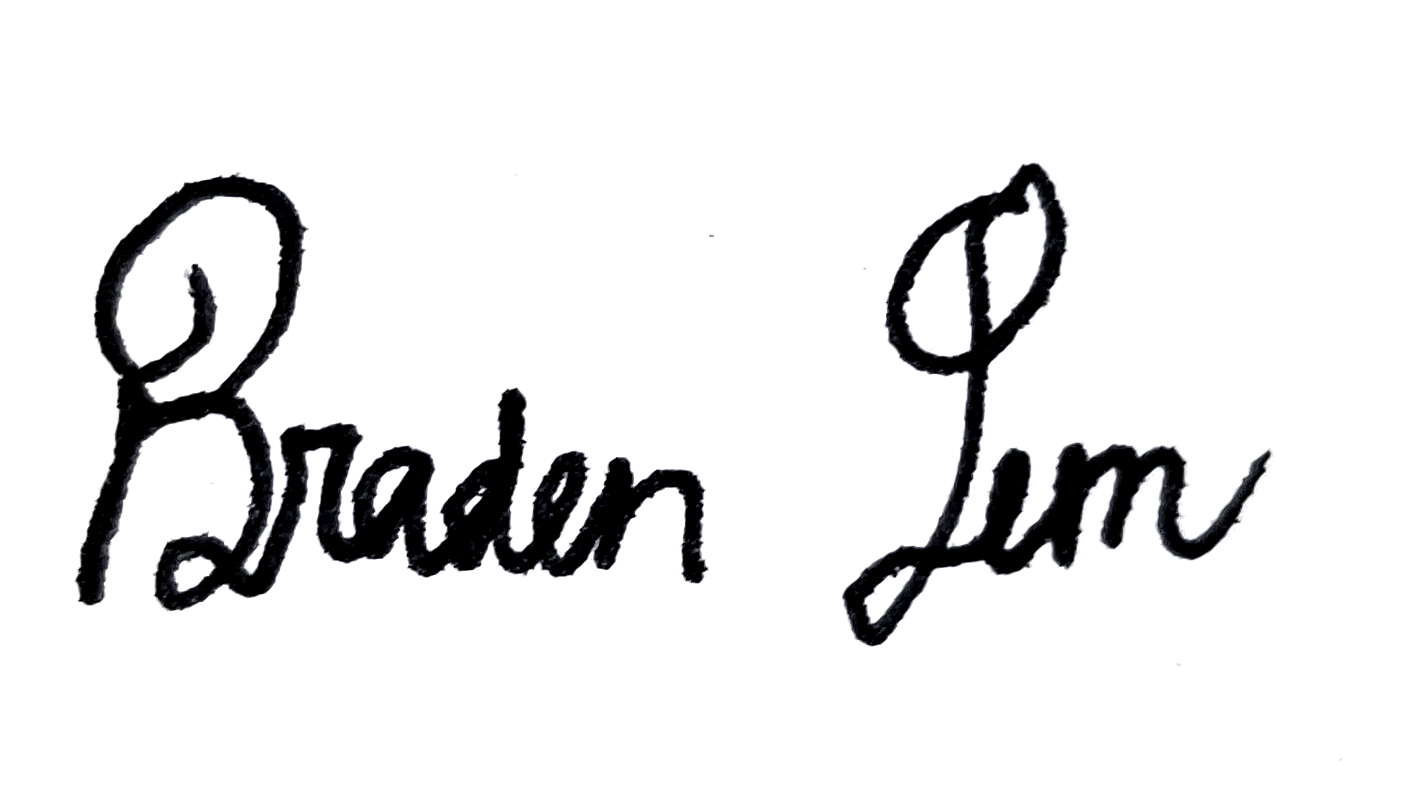 Braden Lem